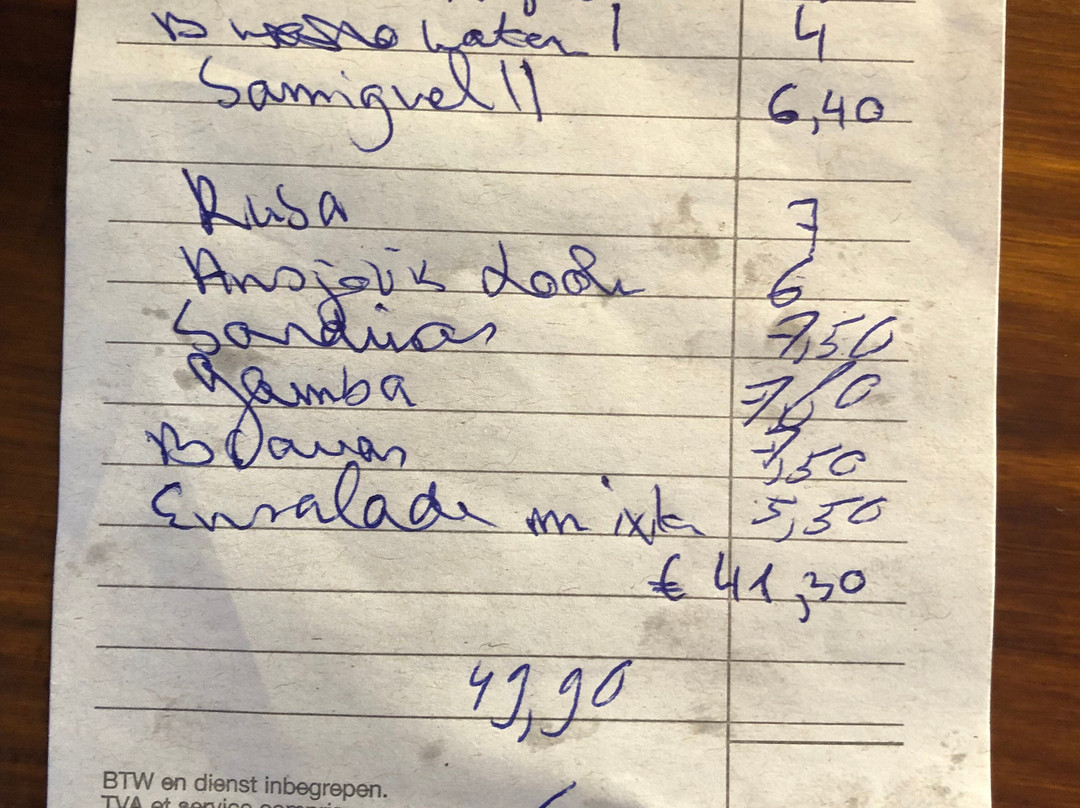 B water 1 4
Samiguel II 6,40
Rusa 7
Ansjovis 6
Sardinas 7,50
gamba
B 7,50
Ensalade mixta 5,50
€ 41,30
49,90
BTW en dienst inbegrepen.
TVA et service